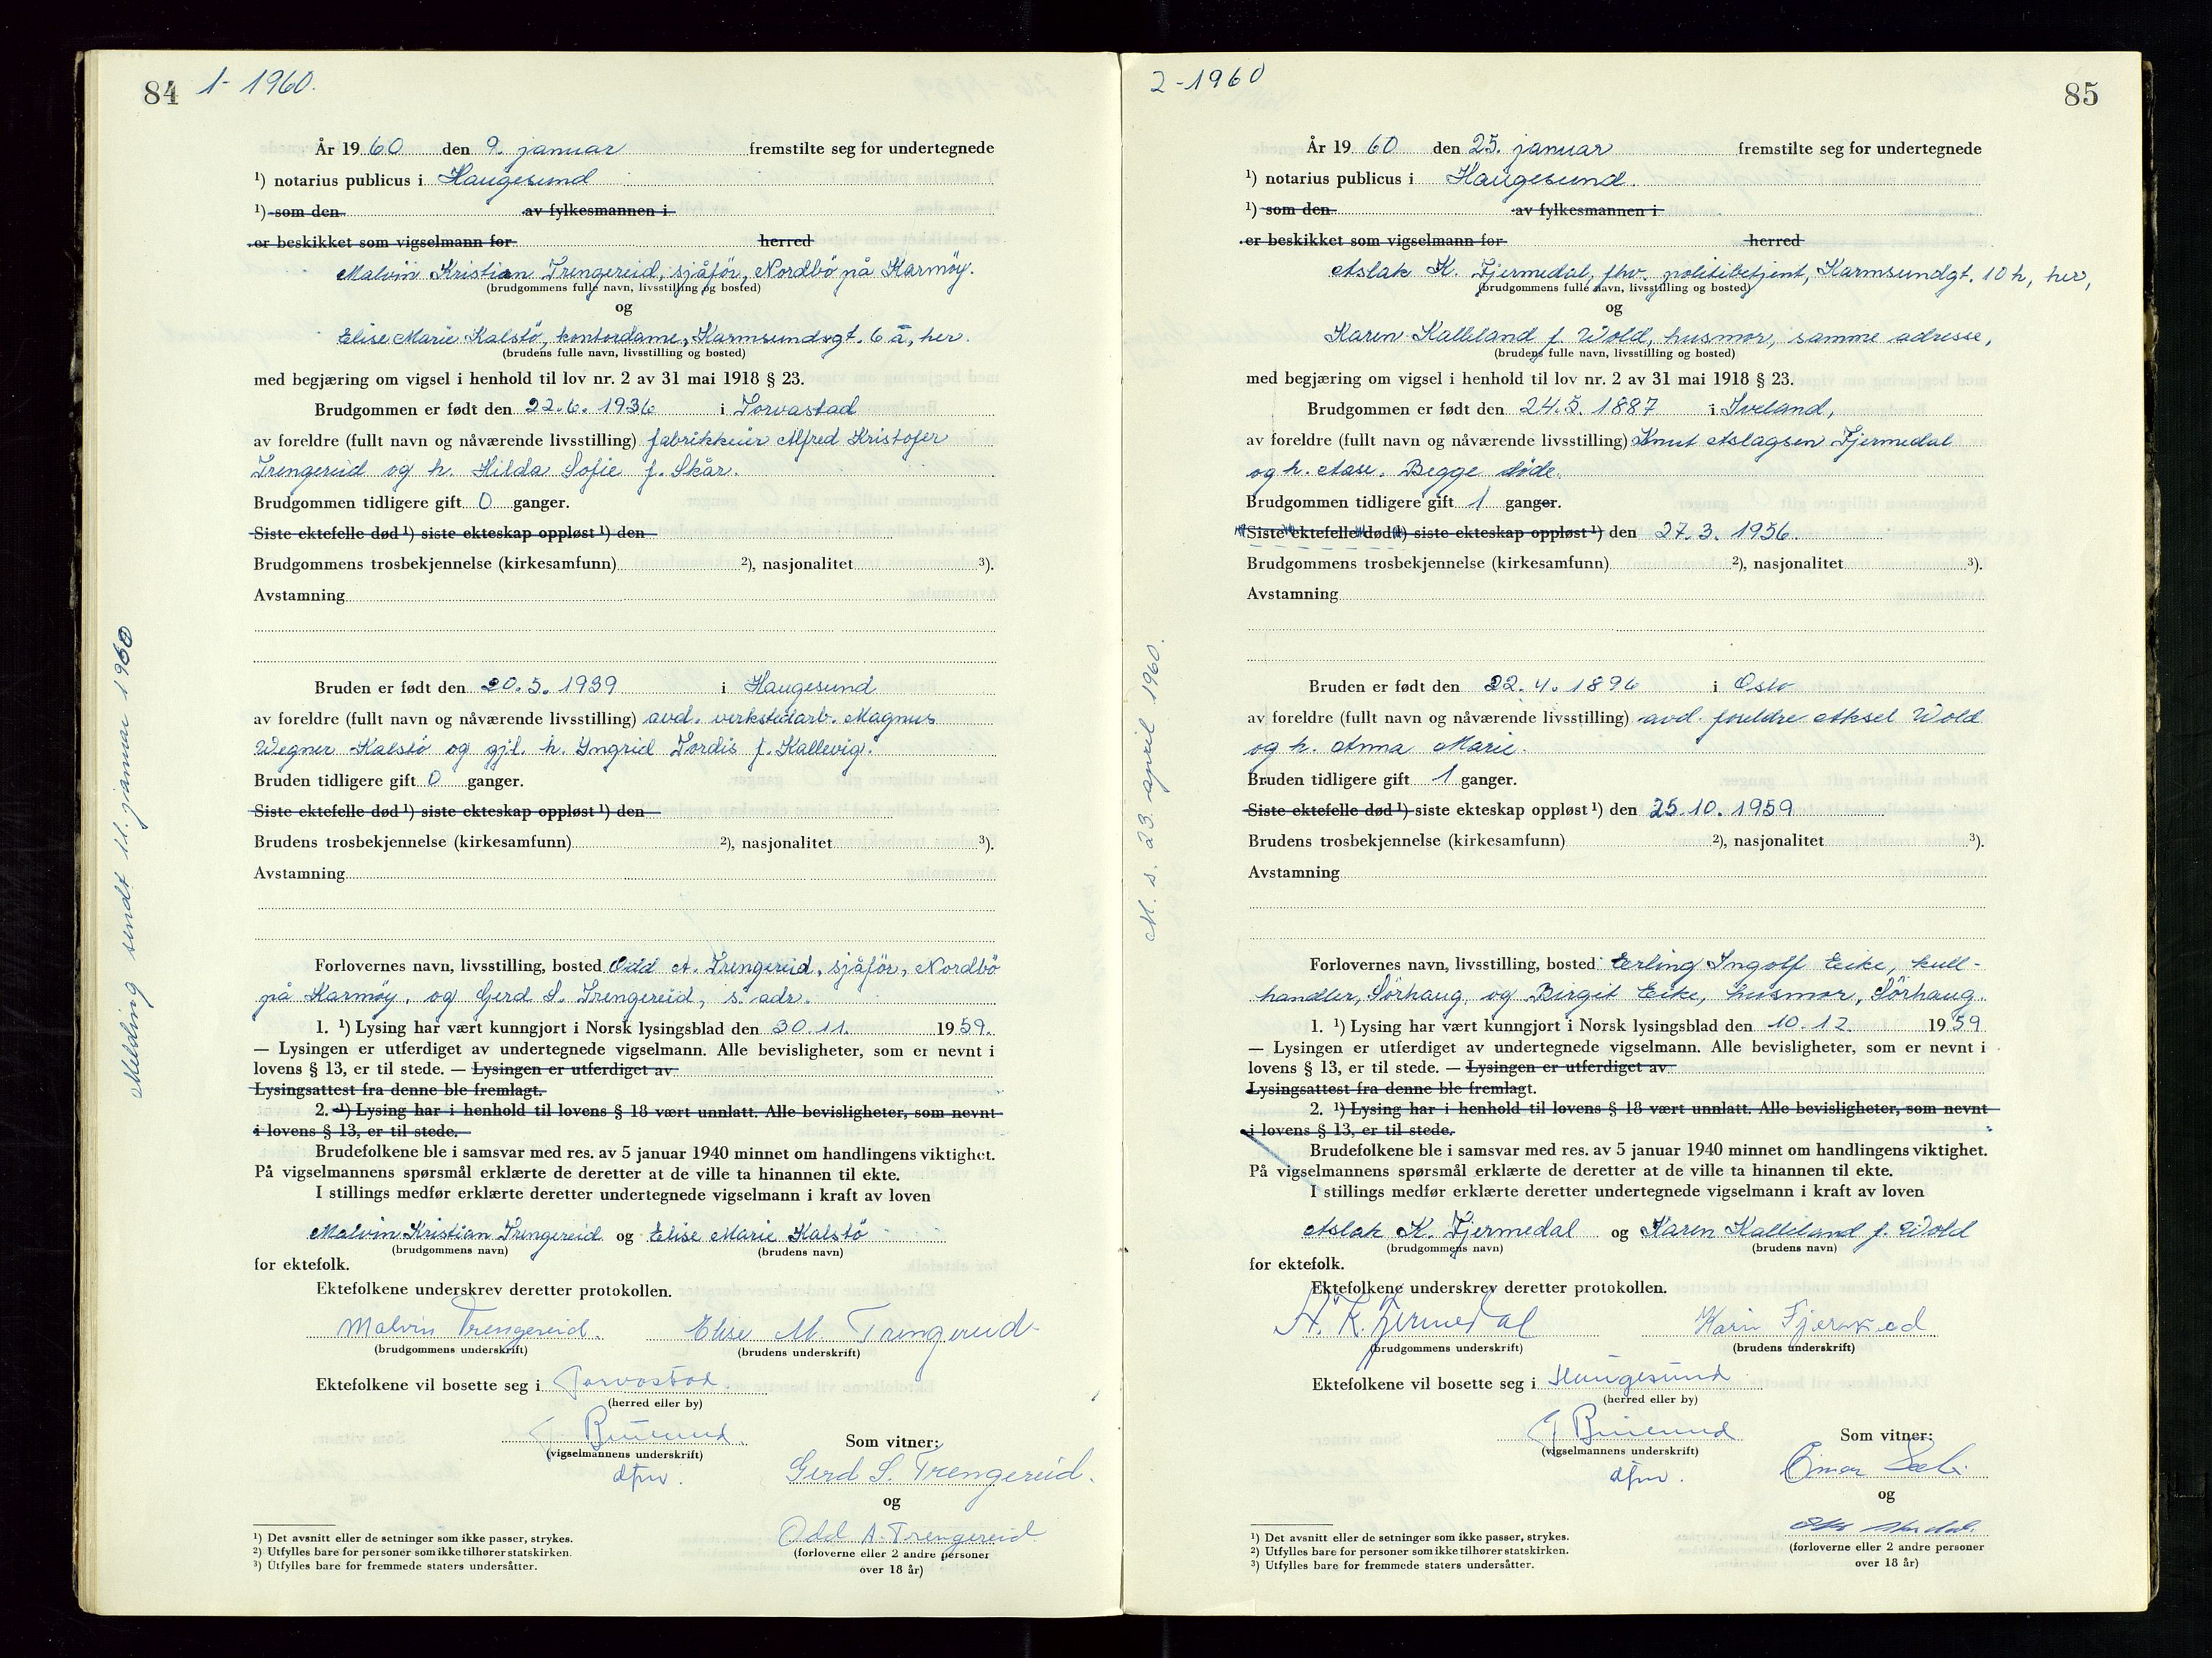 84 1- 1960.
År 19 60 den 9. januar fremstilte seg for undertegnede
¹) notarius publicus i Haugesund
¹) som den av fylkesmannen i
er beskikket som vigselmann for herred
Malvin Kristian Trengereid, sjåfør, Nordbö på Karmöy.
(brudgommens fulle navn, livsstilling og bosted)
og
Elise Marie Kalstö, kontordame, Karmsundsgt. 6 a, her.
(brudens fulle navn, livsstilling og bosted)
med begjæring om vigsel i henhold til lov nr. 2 av 31 mai 1918 § 23.
Brudgommen er født den 22.6.1936 i Torvastad
av foreldre (fullt navn og nåværende livsstilling) fabrikkeier Alfred Kristofer
Trengereid og h. Hilda Sofie f. Skår.
Brudgommen tidligere gift 0 ganger.
Siste ektefelle død ¹) siste ekteskap oppløst ¹) den
Brudgommens trosbekjennelse (kirkesamfunn) ²), nasjonalitet ³).
Avstamning
Bruden er født den 20.5.1939 i Haugesund
av foreldre (fullt navn og nåværende livsstilling) avd. verkstedarb. Magnus
Wegner Kalstö og gjl. h. Yngrid Tordis f. Kallevig.
Bruden tidligere gift 0 ganger.
Siste ektefelle død ¹) siste ekteskap oppløst ¹) den
Brudens trosbekjennelse (kirkesamfunn) ²), nasjonalitet ³).
Avstamning
Forlovernes navn, livsstilling, bosted Odd A. Trengereid, sjåför, Nordbö
på Karmöy, og Gerd S. Trengereid, s. adr.
1. ¹) Lysing har vært kunngjort i Norsk lysingsblad den 30.11. 1959.
— Lysingen er utferdiget av undertegnede vigselmann. Alle bevisligheter, som er nevnt i
lovens § 13, er til stede. — Lysingen er utferdiget av
Lysingsattest fra denne ble fremlagt.
2. ¹) Lysing har i henhold til lovens § 18 vært unnlatt. Alle bevisligheter, som nevnt
i lovens § 13, er til stede.
Brudefolkene ble i samsvar med res. av 5 januar 1940 minnet om handlingens viktighet.
På vigselmannens spørsmål erklærte de deretter at de ville ta hinannen til ekte.
I stillings medfør erklærte deretter undertegnede vigselmann i kraft av loven
Malvin Kristian Trengereid og Elise Marie Kalstö
(brudgommens navn) (brudens navn)
for ektefolk.
Ektefolkene underskrev deretter protokollen.
Malvin Trengereid. Elise M. Trengereid
(brudgommens underskrift) (brudens underskrift)
Ektefolkene vil bosette seg i Torvastad.
(herred eller by)
(vigselmannens underskrift)
dfm.
Som vitner:
Gerd S. Trengereid.
og
Odd A. Trengereid
(forloverne eller 2 andre personer
over 18 år)
¹) Det avsnitt eller de setninger som ikke passer, strykes.
²) Utfylles bare for personer som ikke tilhører statskirken.
³) Utfylles bare for fremmede staters undersåtter.
Melding sendt 11. januar 1960
2-1960 85
År 19 60 den 25. januar fremstilte seg for undertegnede
¹) notarius publicus i Haugesund.
¹) som den av fylkesmannen i
er beskikket som vigselmann for herred
Aslak K. Fjermedal, fhv. politibetjent, Karmsundgt. 10 h, her,
(brudgommens fulle navn, livsstilling og bosted)
og
Karen Kalleland f. Wold, husmor, samme adresse,
(brudens fulle navn, livsstilling og bosted)
med begjæring om vigsel i henhold til lov nr. 2 av 31 mai 1918 § 23.
Brudgommen er født den 24.5.1887 i Iveland,
av foreldre (fullt navn og nåværende livsstilling) Knut Aslagsen Fjermedal
og h. Aase. Begge döde.
Brudgommen tidligere gift 1 ganger.
Siste ektefelle død ¹) siste ekteskap oppløst ¹) den 27.3.1956.
Brudgommens trosbekjennelse (kirkesamfunn) ²), nasjonalitet ³).
Avstamning
Bruden er født den 22.4.1896 i Oslo
av foreldre (fullt navn og nåværende livsstilling) avd. foreldre Aksel Wold
og h. Anna Marie.
Bruden tidligere gift 1 ganger.
Siste ektefelle død ¹) siste ekteskap oppløst ¹) den 25.10.1959
Brudens trosbekjennelse (kirkesamfunn) ²), nasjonalitet ³).
Avstamning
Forlovernes navn, livsstilling, bosted Erling Ingolf Eike, kull-
handler, Sörhaug, og Birgit Eike, husmor, Sörhaug.
1. ¹) Lysing har vært kunngjort i Norsk lysingsblad den 10.12. 1959
— Lysingen er utferdiget av undertegnede vigselmann. Alle bevisligheter, som er nevnt i
lovens § 13, er til stede. — Lysingen er utferdiget av
Lysingsattest fra denne ble fremlagt.
2. ¹) Lysing har i henhold til lovens § 18 vært unnlatt. Alle bevisligheter, som nevnt
i lovens § 13, er til stede.
Brudefolkene ble i samsvar med res. av 5 januar 1940 minnet om handlingens viktighet.
På vigselmannens spørsmål erklærte de deretter at de ville ta hinannen til ekte.
I stillings medfør erklærte deretter undertegnede vigselmann i kraft av loven
Aslak K. Fjermedal og Karen Kalleland f. Wold
(brudgommens navn) (brudens navn)
for ektefolk.
Ektefolkene underskrev deretter protokollen.
A. K. Fjermedal Karin
(brudgommens underskrift) (brudens underskrift)
Ektefolkene vil bosette seg i Haugesund
(herred eller by)
(vigselmannens underskrift)
dfm.
Som vitner:
og
(forloverne eller 2 andre personer
over 18 år)
¹) Det avsnitt eller de setninger som ikke passer, strykes.
²) Utfylles bare for personer som ikke tilhører statskirken.
³) Utfylles bare for fremmede staters undersåtter.
M. s. d 23. april 1960.